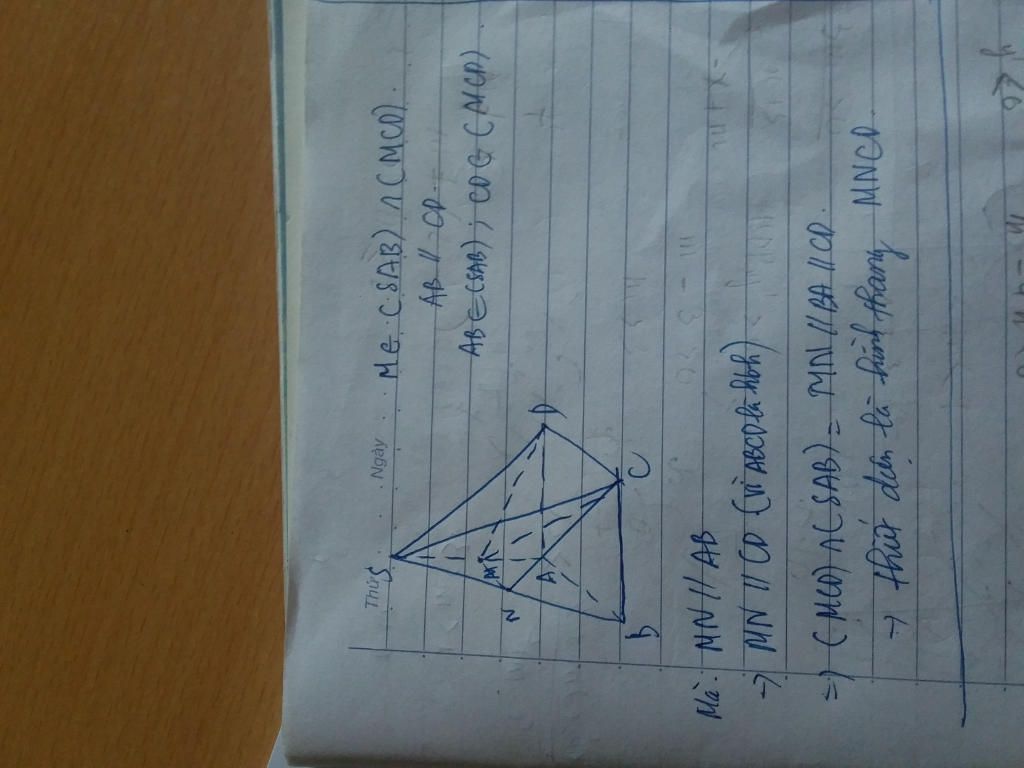 Thứ Ngày
S
M ∈ (SAB) ∩ (MCD).
AB // CD.
AB ∈ (SAB); CD ∈ (MCD).
M
N
A
D
B
C
Mà: MN // AB
→ MN // CD (vì ABCD là hbh)
=> (MCD) ∩ (SAB) = MN // BA // CD.
→ thiết diện là hình thang MNCD.